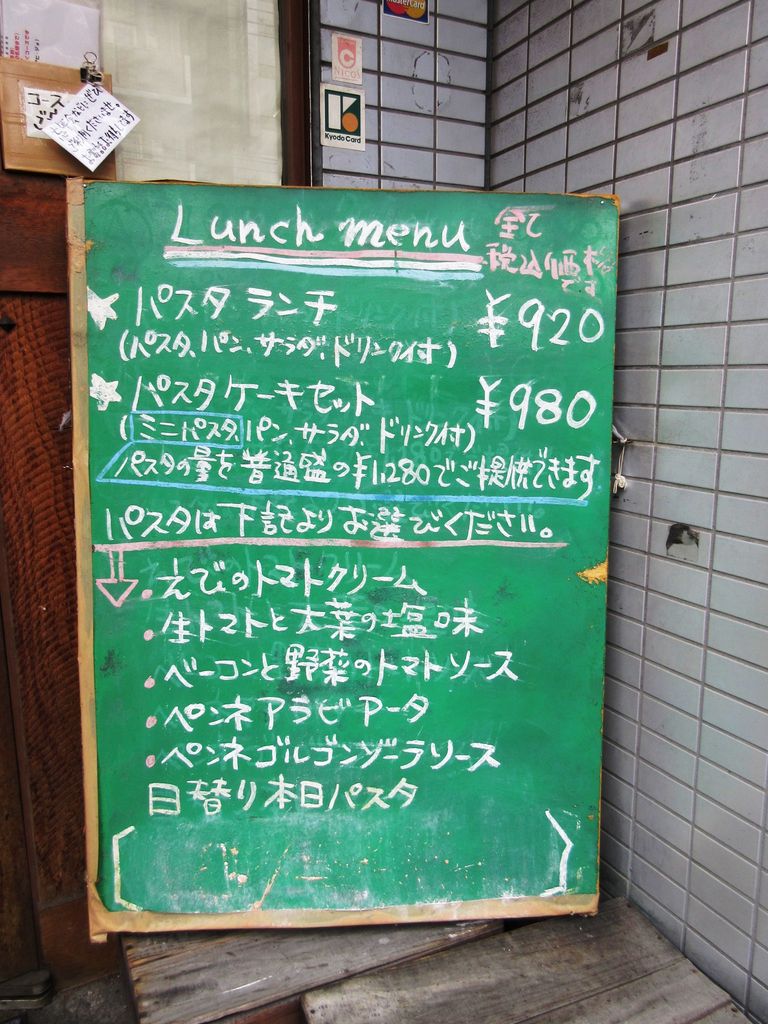 MasterCard
NICOS
Kyodo Card
コース
Lunch menu
全て
税込価格
です
☆ パスタ ランチ ¥920
(パスタ、パン、サラダ、ドリンク付)
☆ パスタケーキセット ¥980
(ミニパスタ、パン、サラダ、ドリンク付)
パスタの量を普通盛の¥1,280でご提供できます
パスタは下記よりお選びください。
・えびのトマトクリーム
・生トマトと大葉の塩味
・ベーコンと野菜のトマトソース
・ペンネアラビアータ
・ペンネゴルゴンゾーラソース
日替り本日パスタ